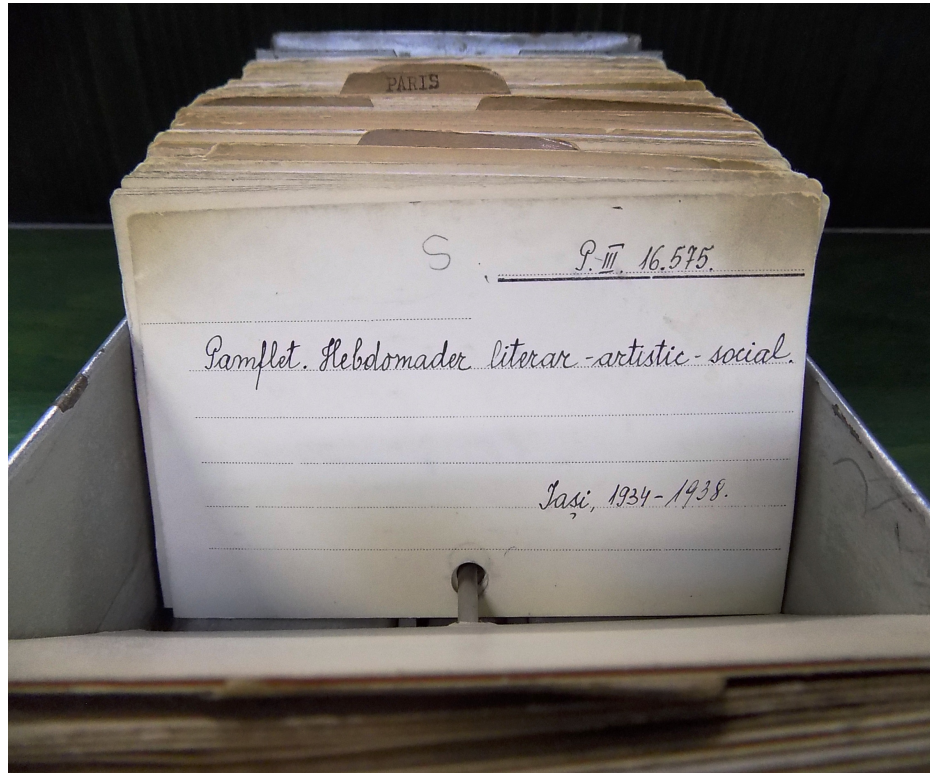 PARIS
S
P. III. 16.575.
Pamflet. Hebdomader literar-artistic-social.
Iași, 1934-1938.